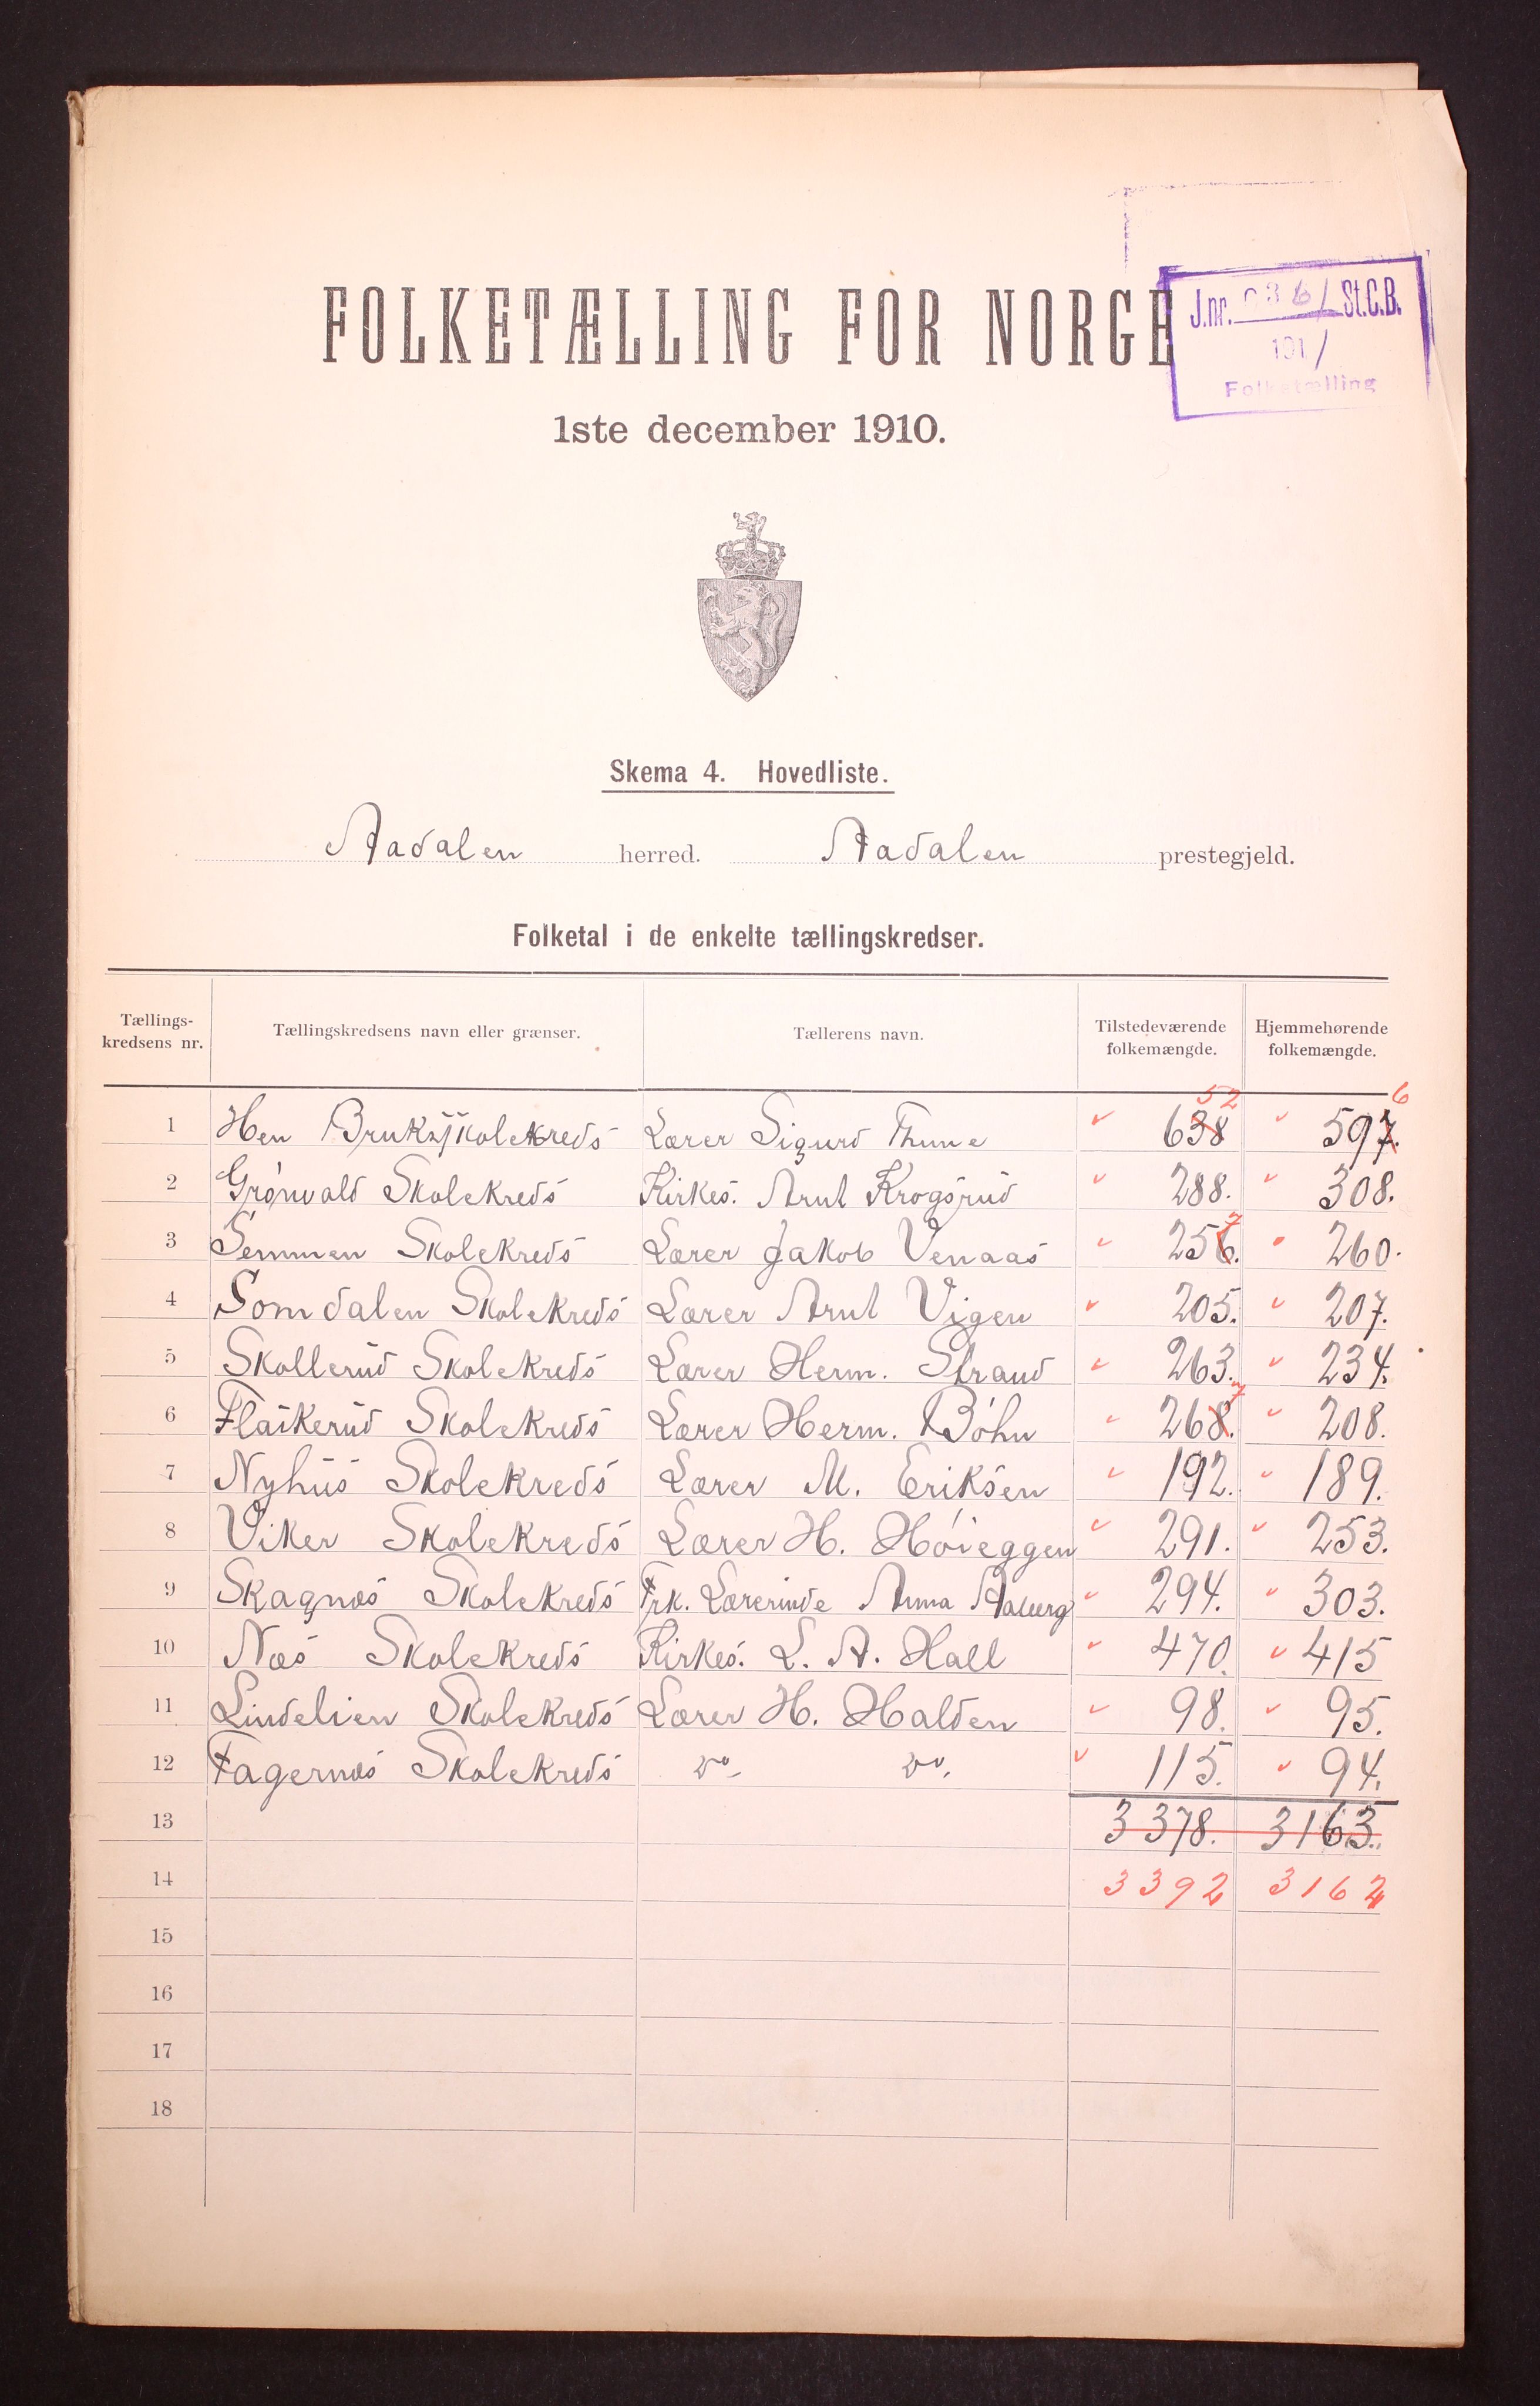 FOLKETÆLLING FOR NORGE
J.nr. 0361 St.C.B.
1911
Folketælling
1ste december 1910.
Skema 4. Hovedliste.
Aadalen herred. Aadalen prestegjeld.
Folketal i de enkelte tællingskredser.
Tællings-kredsens nr. Tællingskredsens navn eller grænser. Tællerens navn. Tilstedeværende folkemængde. Hjemmehørende folkemængde.
52 6
1 Hen Bruksskolekreds Lærer Sigurd Thune 638 597.
2 Grønvold Skolekreds Kirkes. Arnt Krogsrud 288. 308.
7
3 Semmen Skolekreds Lærer Jakob Venaas 256. 260.
4 Somdalen Skolekreds Lærer Arnt Vigen 205. 207.
5 Skollerud Skolekreds Lærer Herm. Strand 263. 234.
7
6 Flaskerud Skolekreds Lærer Herm. Bøhn 268. 208.
7 Nyhus Skolekreds Lærer M. Eriksen 192. 189.
8 Viker Skolekreds Lærer H. Høieggen 291. 253.
9 Skagnæs Skolekreds Frk. Lærerinde Anna Aaberg 294. 303.
10 Næs Skolekreds Kirkes. L. A. Hall 470. 415
11 Lindelien Skolekreds Lærer H. Halden 98. 95.
12 Fagernæs Skolekreds do do. 115. 94.
13 3378. 3163.
14 3392 3162
15
16
17
18